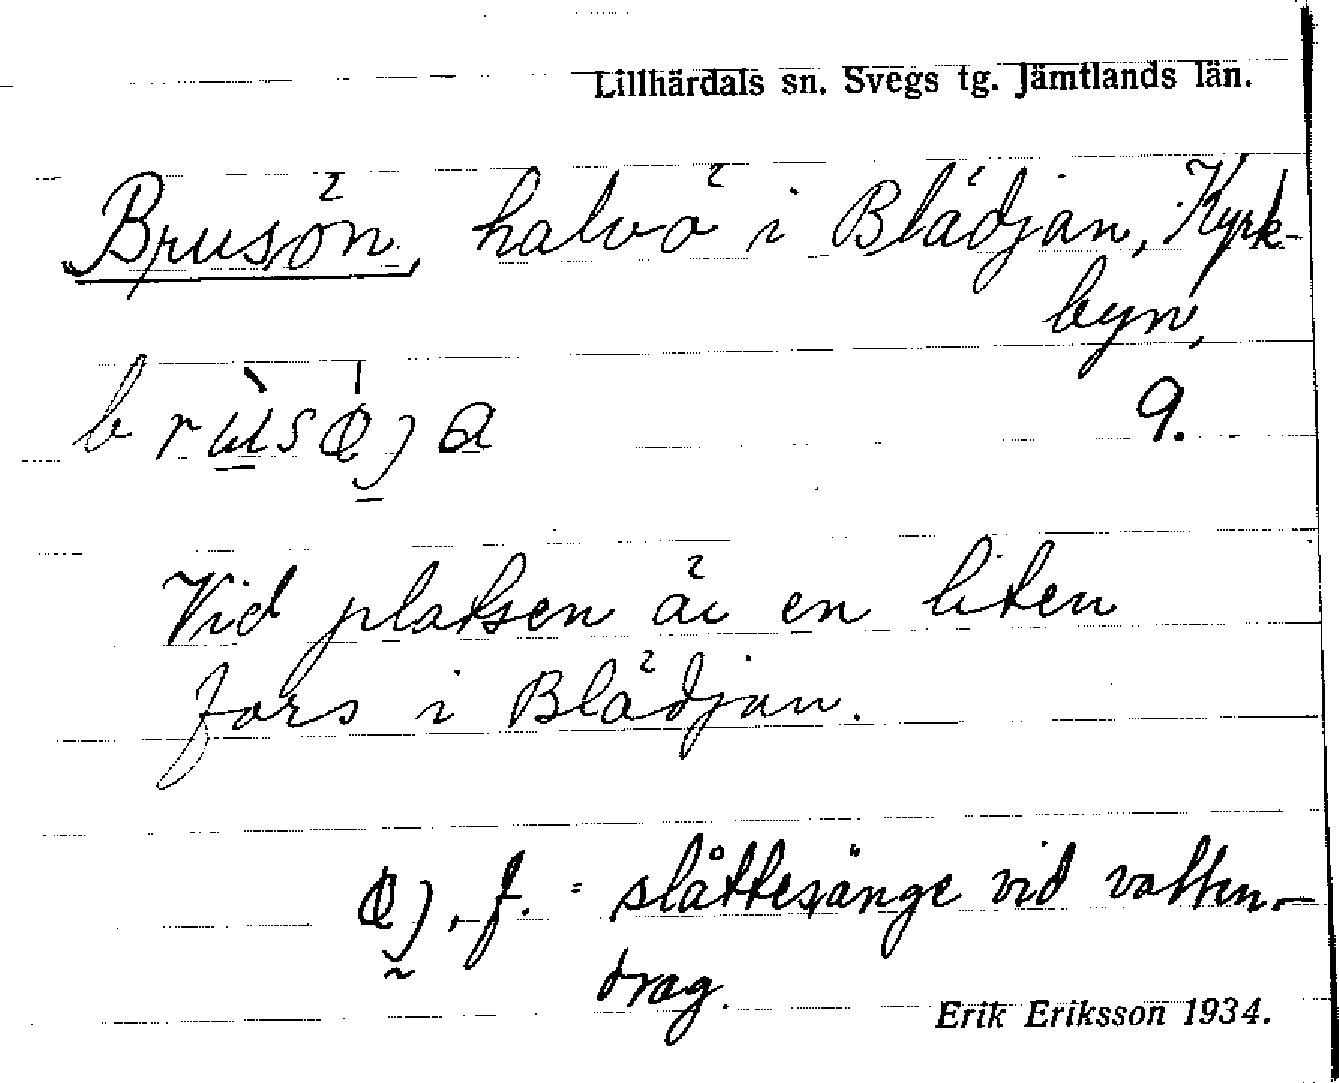 Lillhärdals sn. Svegs tg. Jämtlands län.
Brusön, halvö i Blädjan, Kyrk-
byn,
9.
Vid platsen är en liten
fors i Blädjan.
f. = slåttesänge vid vatten-
drag.
Erik Eriksson 1934.